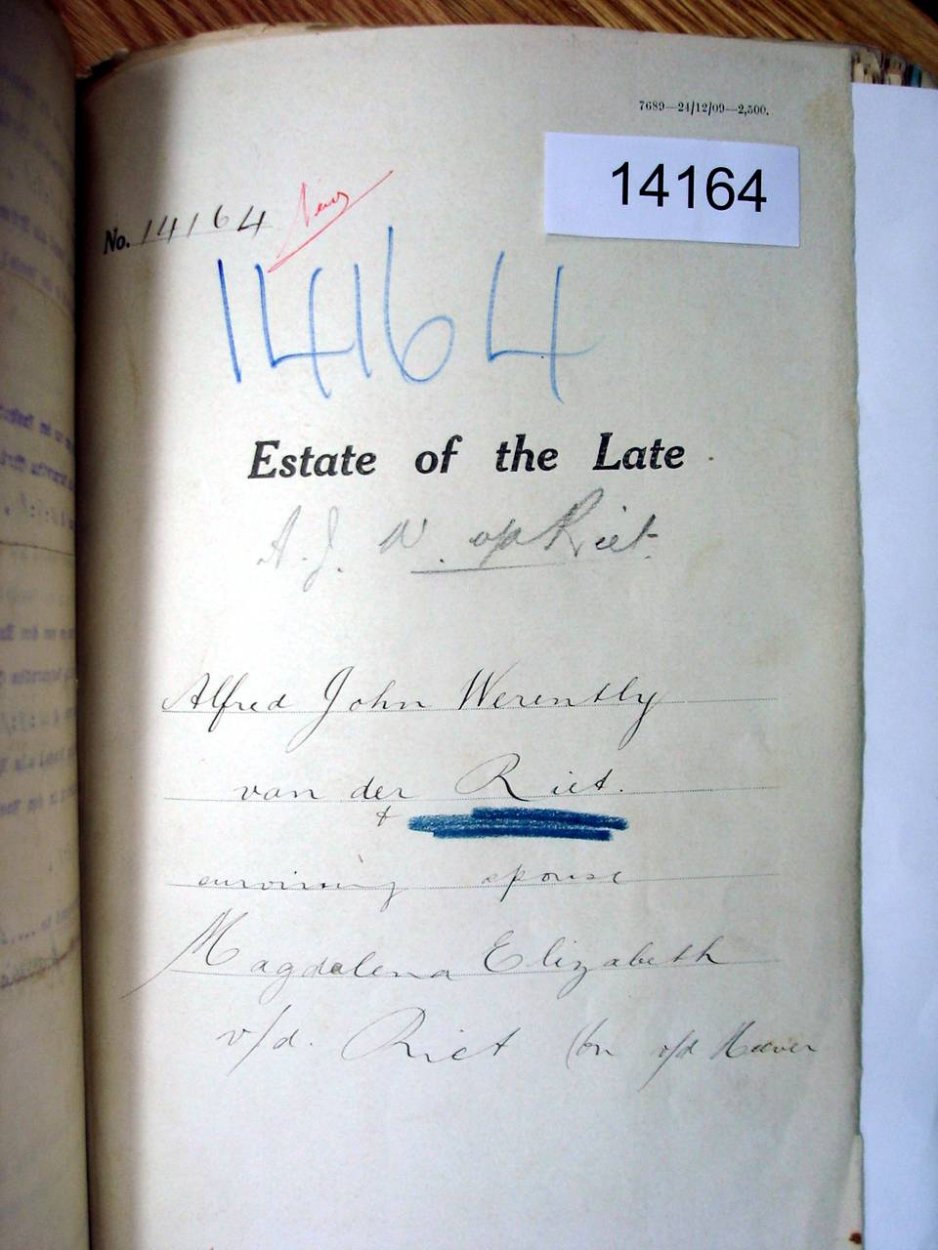 7689—24/12/09—2,500.
14164
No. 14164
14164
Estate of the Late
A. J. W. v/d Riet.
Alfred John Werently
van der Riet.
&
surviving spouse
Magdalena Elizabeth
v/d. Riet (bn v/d